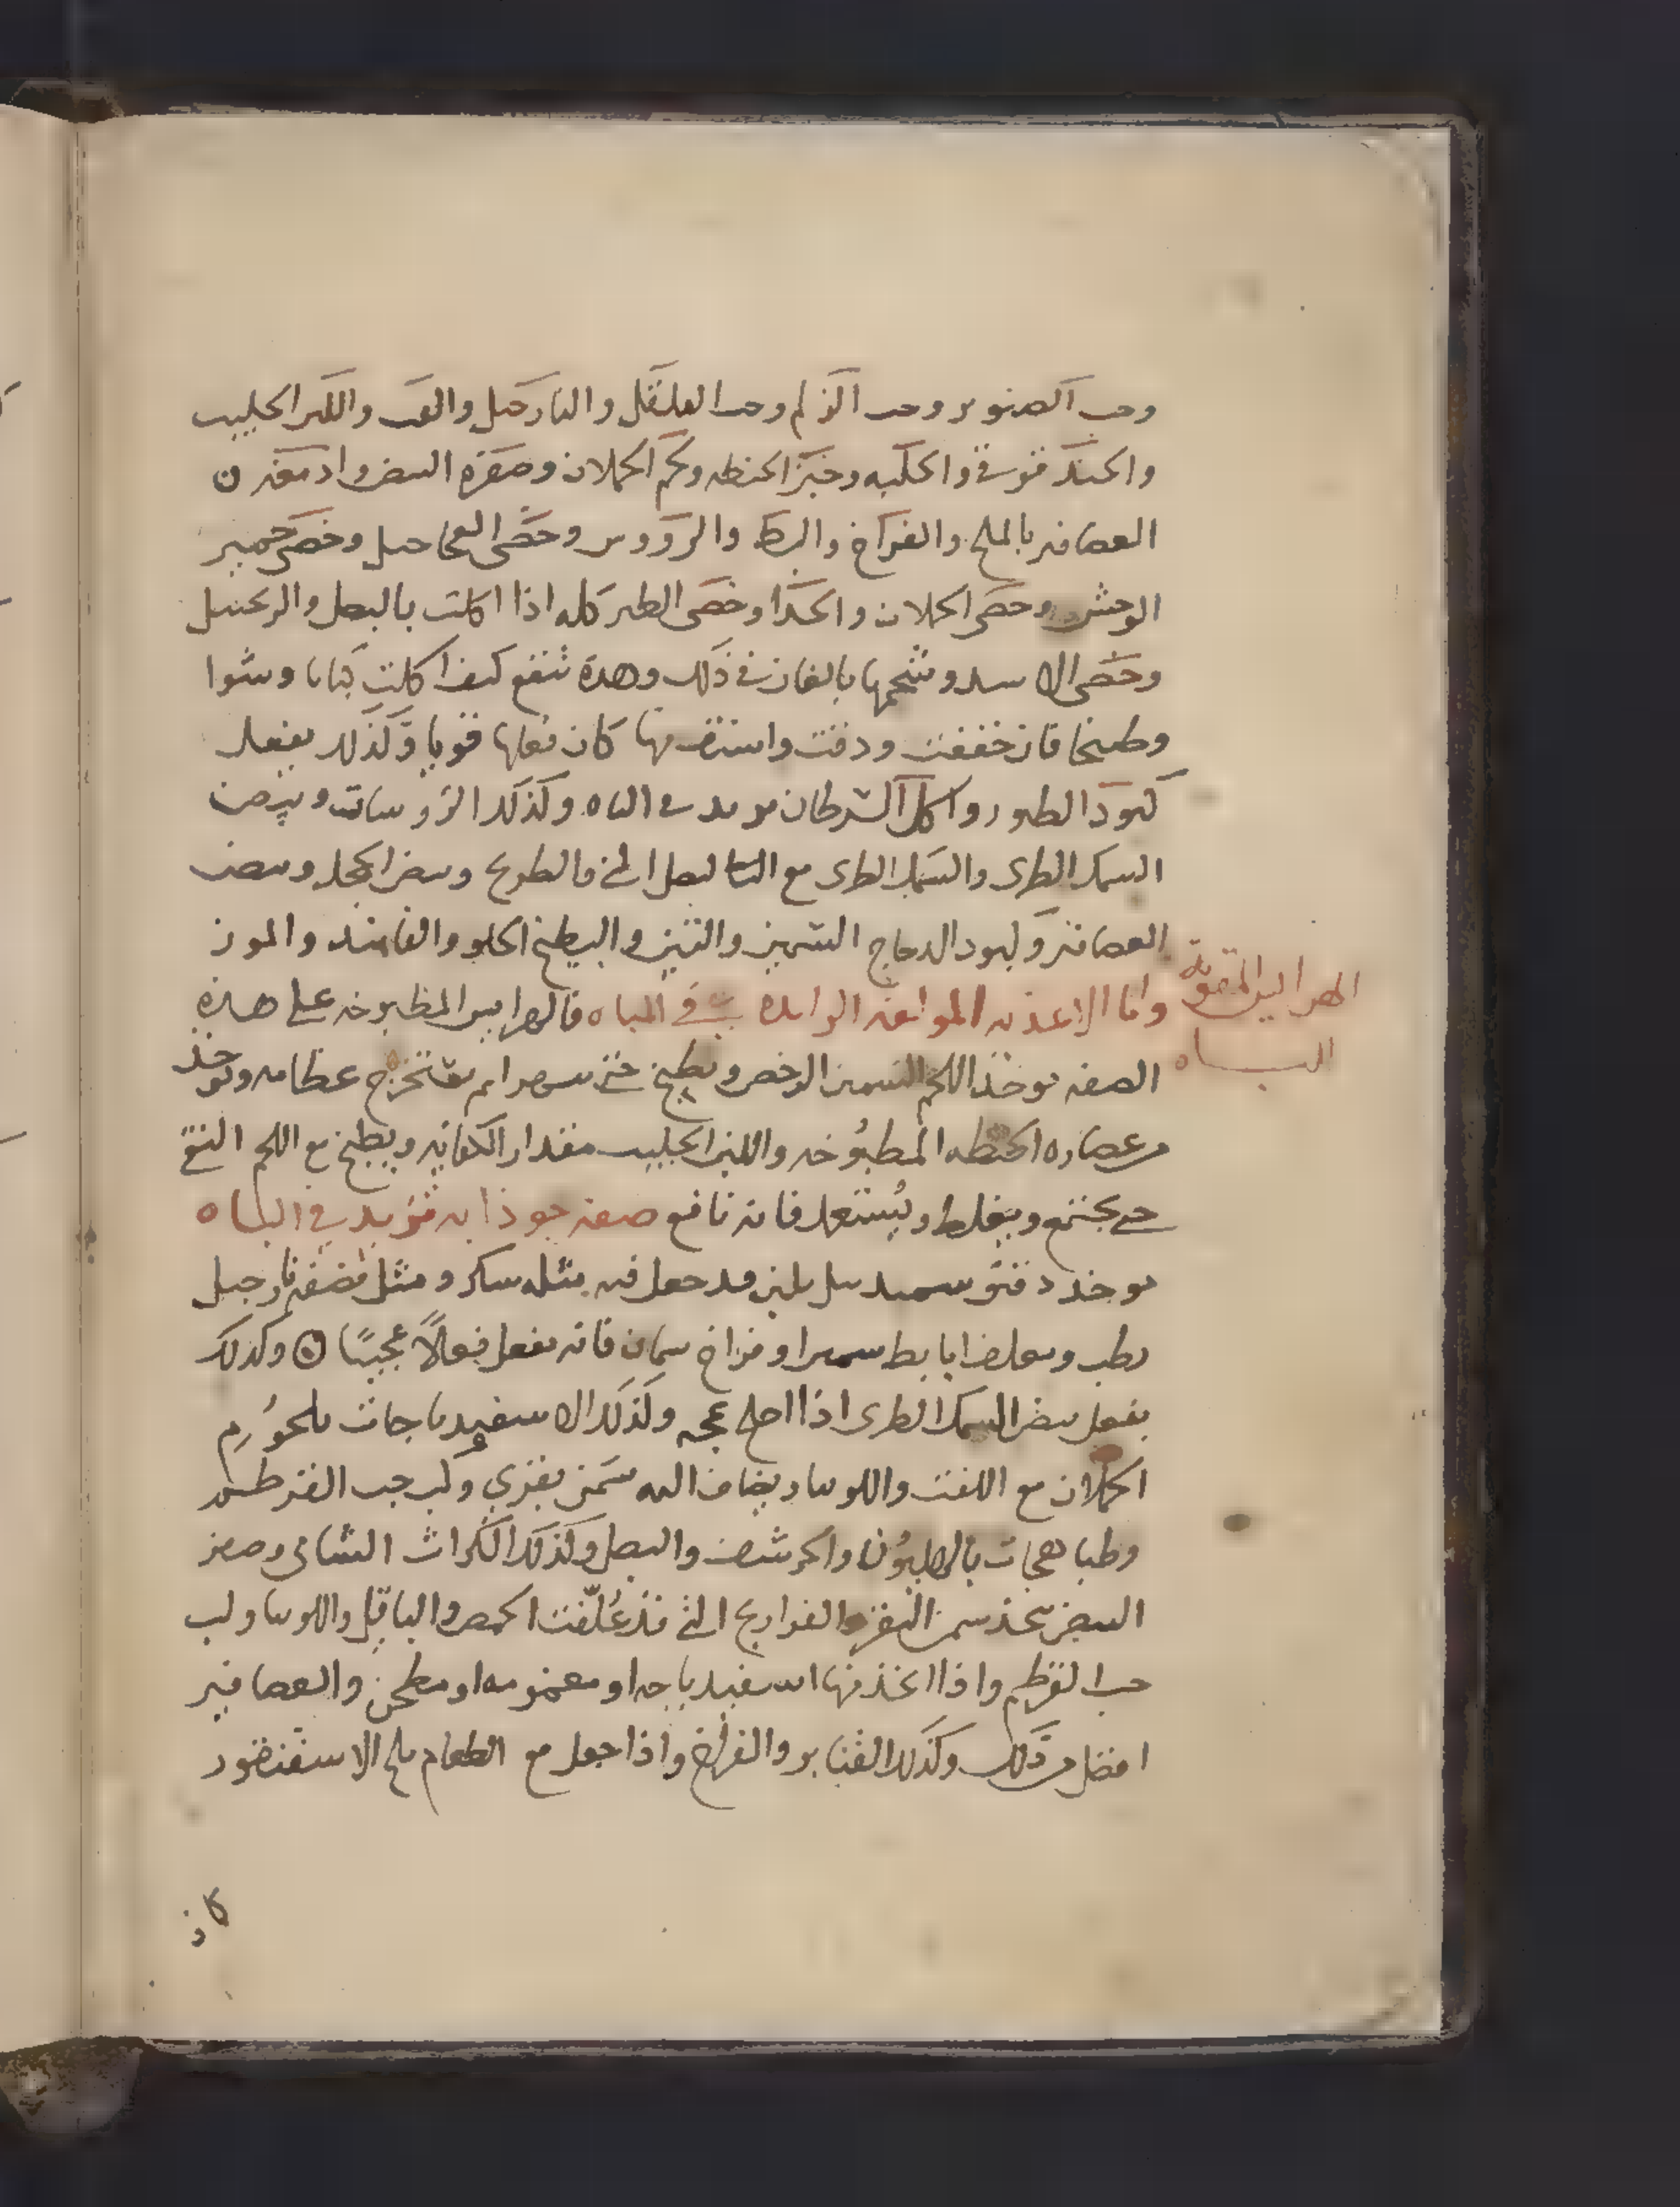 وحب الصنوبر وحب الزلم وحب الفلفل والنارجيل والعنب واللبن الحليب
والحندقوقي والحلبه وخبز الحنطه ولحم الحملان وصفرة البيض وادمغه ن
العصافير بالملح والفراخ والبط والرووس وخصى العجاجيل وخصى حمير
الوحش وخصى الحملان والجدا وخصى الطير كله اذا اكلت بالبصل والزنجبيل
وخصى الاسد وشحمها بالغان في ذلك وهذه تنفع كيف اكلت كبابا وشوا
وطبيخا فان خففت ودقت واستف منها كان فعلها قويا وكذلك يفعل
كبود الطيور واكل السرطان يزيد في الباه وكذلك الروبيات وبيض
السمك الطرى والسمك الطرى مع البصل الحى والطريخ وبيض الحجل وبيض
العصافير وكبود الدجاج السمين والتين والبطيخ الحلو والفانيد والموز
واما الاغذيه الموافقه الزايده في المباه فالهرايس المطبوخه على هذه
الهرايس المقويه
الباه
الصفه يوخذ اللحم السمين الرخص ويطبخ حتى يتهرا ثم تخرج عظامه ويوخذ
من عصاره الحنطه المطبوخه واللبن الحليب مقدار الكفايه ويطبخ مع اللحم النقى
حتى يجتمع ويغلظ ويستعمل فانه نافع صفه جوذابه تزيد في الباه
يوخذ دقيق سميد يبل بلبن قد جعل فيه مثله سكر ومثل نصفه نارجيل
رطب ويعلق ايا بط سمين او فراخ سمان فانه يفعل فعلاً عجيبًا ۞ وكذلك
يفعل بيض السمك الطرى اذا اصلح عجه وكذلك الاسفيدباجات بلحوم
الحملان مع اللفت واللوبيا ويضاف اليه سمن بقري ولب حب القرطم
وطباهجات بالهليون والحرشف والبصل وكذلك الكراث الشامى وصفر
البيض يتخذ بسمن البقر والفراريج التي قد علّفت الحمص والباقلى واللوبيا ولب
حب القرطم واذا اتخذ منها اسفيدباجه او مغمومه او مطجن والعصافير
افضل من ذلك وكذلك القنابر والفراخ واذا جعل مع الطعام ملح الاسقنقور
كان